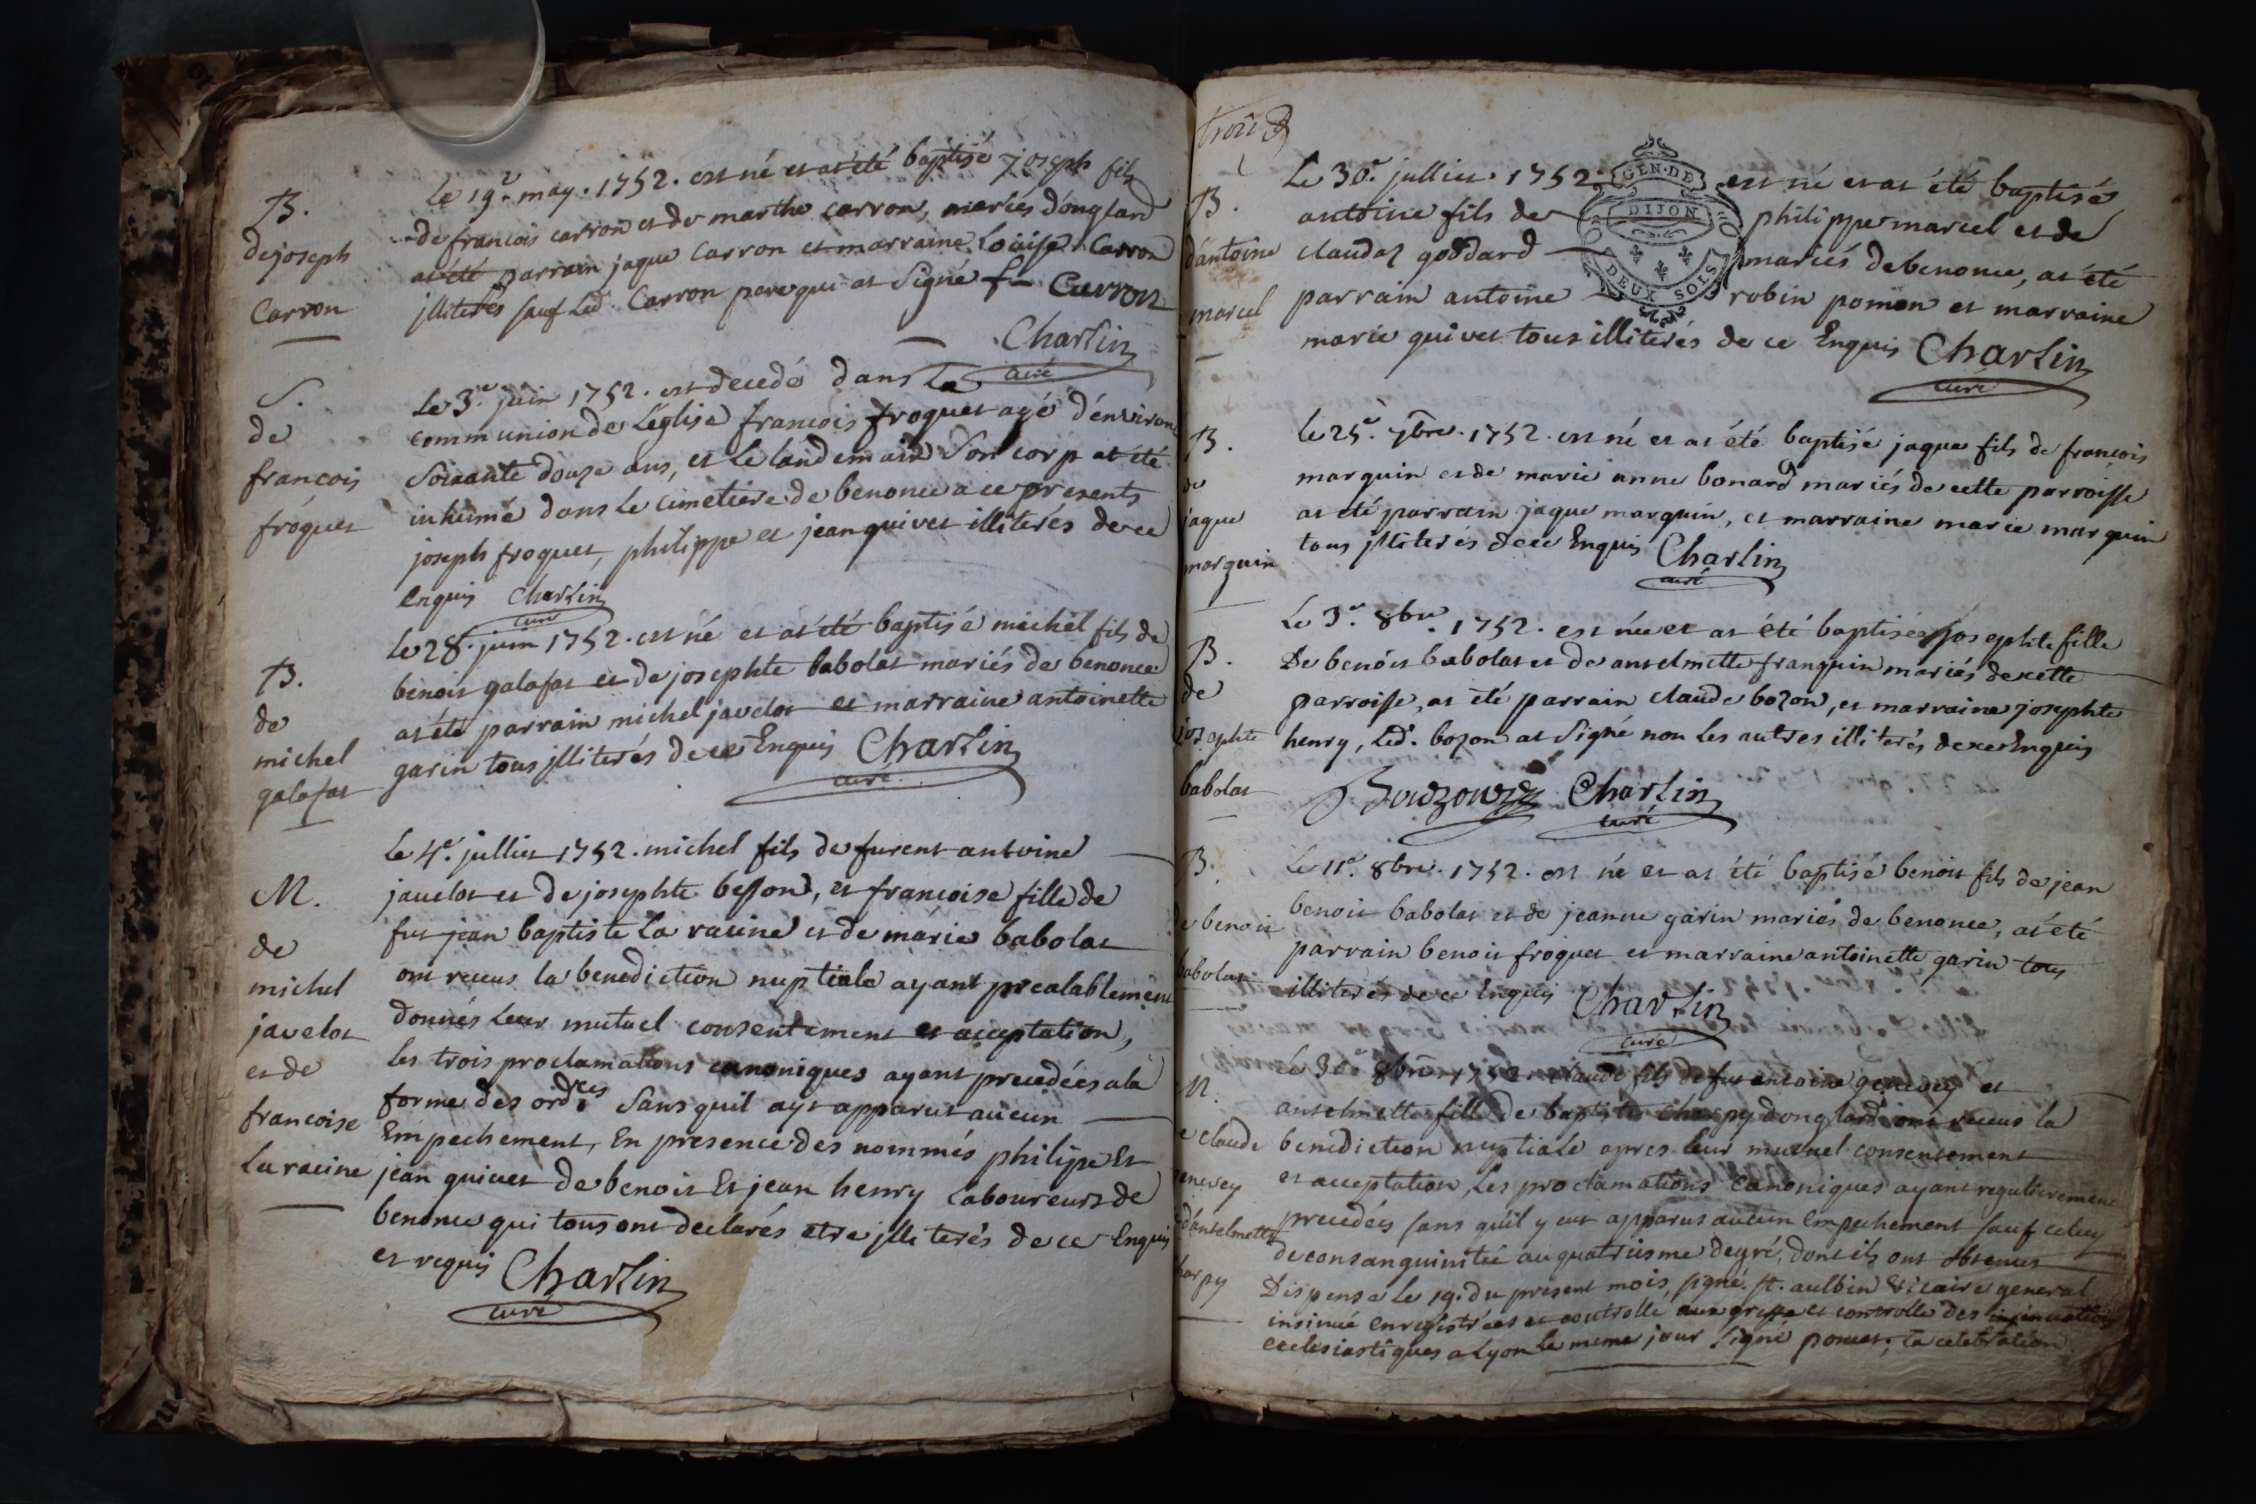 B.
de joseph
Carron
Le 19e may. 1752. est né et at été baptisé joseph fils
de francois carron et de marthe carron, mariés d'onglard
at été parrain jaque carron et marraine Loüise Carron
jlliterés sauf Led. Carron pere qui at signé f- Carron
Charlin
curé
S.
de
francois
froquet
Le 3e. juin 1752. est decedé dans La
communion de L'église francois froquet agé d'environ
soixante douze ans, et Le landemain son corp at été
inhumé dans Le cimetiere de benonce a ce presents
joseph froquet, philippe et jean quivet illiterés de ce
enquis Charlin
curé
B.
de
michel
galafat
Le 28. juin 1752. est né et at été baptisé michel fils de
benoit galafat et de josephte babolat mariés de benonce
at été parrain michel javelot et marraine antoinette
garin tous jlliterés de ce Enquis Charlin
curé
M.
de
michel
javelot
et de
francoise
La racine
Le 4e. julliet 1752. michel fils de furent antoine
javelot et de josephte besson, et francoise fille de
fut jean baptiste La racine et de marie babolat
ont receus la benediction nuptiale ayant prealablement
donnés Leur mutuel consentement et acceptation,
les trois proclamations canoniques ayant precedées a la
forme des ord.ces sans quil ayt apparut aucun
Empechement, En presence des nommés philipe Et
jean quivet de benoit Et jean henry Laboureurs de
benonce qui tous ont declarés etre jlliterés de ce Enquis
et requis Charlin
curé
trois
B.
d'antoine
marcel
GEN. DE
DIJON
DEUX SOLS
Le 30e. julliet 1752. est né et at été baptisé
antoine fils de philippe marcel et de
claudaz goddard mariés de benonce, at été
parrain antoine robin pomon et marraine
marie quivet tous illiterés de ce Enquis Charlin
curé
B.
de
jaque
marquin
Le 25e. 7bre. 1752. est né et at été baptisé jaque fils de françois
marquin et de marie anne bonard mariés de cette parroisse
at été parrain jaque marquin, et marraine marie marquin
tous jlliterés de ce Enquis Charlin
curé
B.
de
josephte
babolat
Le 3e. 8bre. 1752. est née et at été baptisée josephte fille
De benoit babolat et de antelmette franquin mariés de cette
parroisse, at été parrain claude bozon, et marraine josephte
henry, Led. bozon at signé non Les autres illiterés de ce Enquis
Bouzon Charlin
curé
B.
de benoit
babolat
Le 11e. 8bre. 1752. est né et at été baptisé benoit fils de jean
benoit babolat et de jeanne garin mariés de benonce, at été
parrain benoit froquet et marraine antoinette garin tous
illiterés de ce Enquis Charlin
curé
M.
de claude
genevey
d'antelmette
charpy
Le 30e 8bre 1752. claude fils de fut antoine genevey et
antelmette fille de baptiste charpy d'onglard ont receus la
benediction nuptiale apres leur mutuel consentement
et acceptation, Les proclamations canoniques ayant regulierement
precedées sans qu'il y eut apparut aucun Empechement sauf celuy
de consanguinitée au quatriesme degré, dont ils ont obtenus
Dispense Le 19. du present mois, signé. st. aulbin vicaire general
insinué enregistrées et controllé aux greffe et controlle des insinuations
ecclesiastiques a Lyon Le meme jour signé ; La celebration